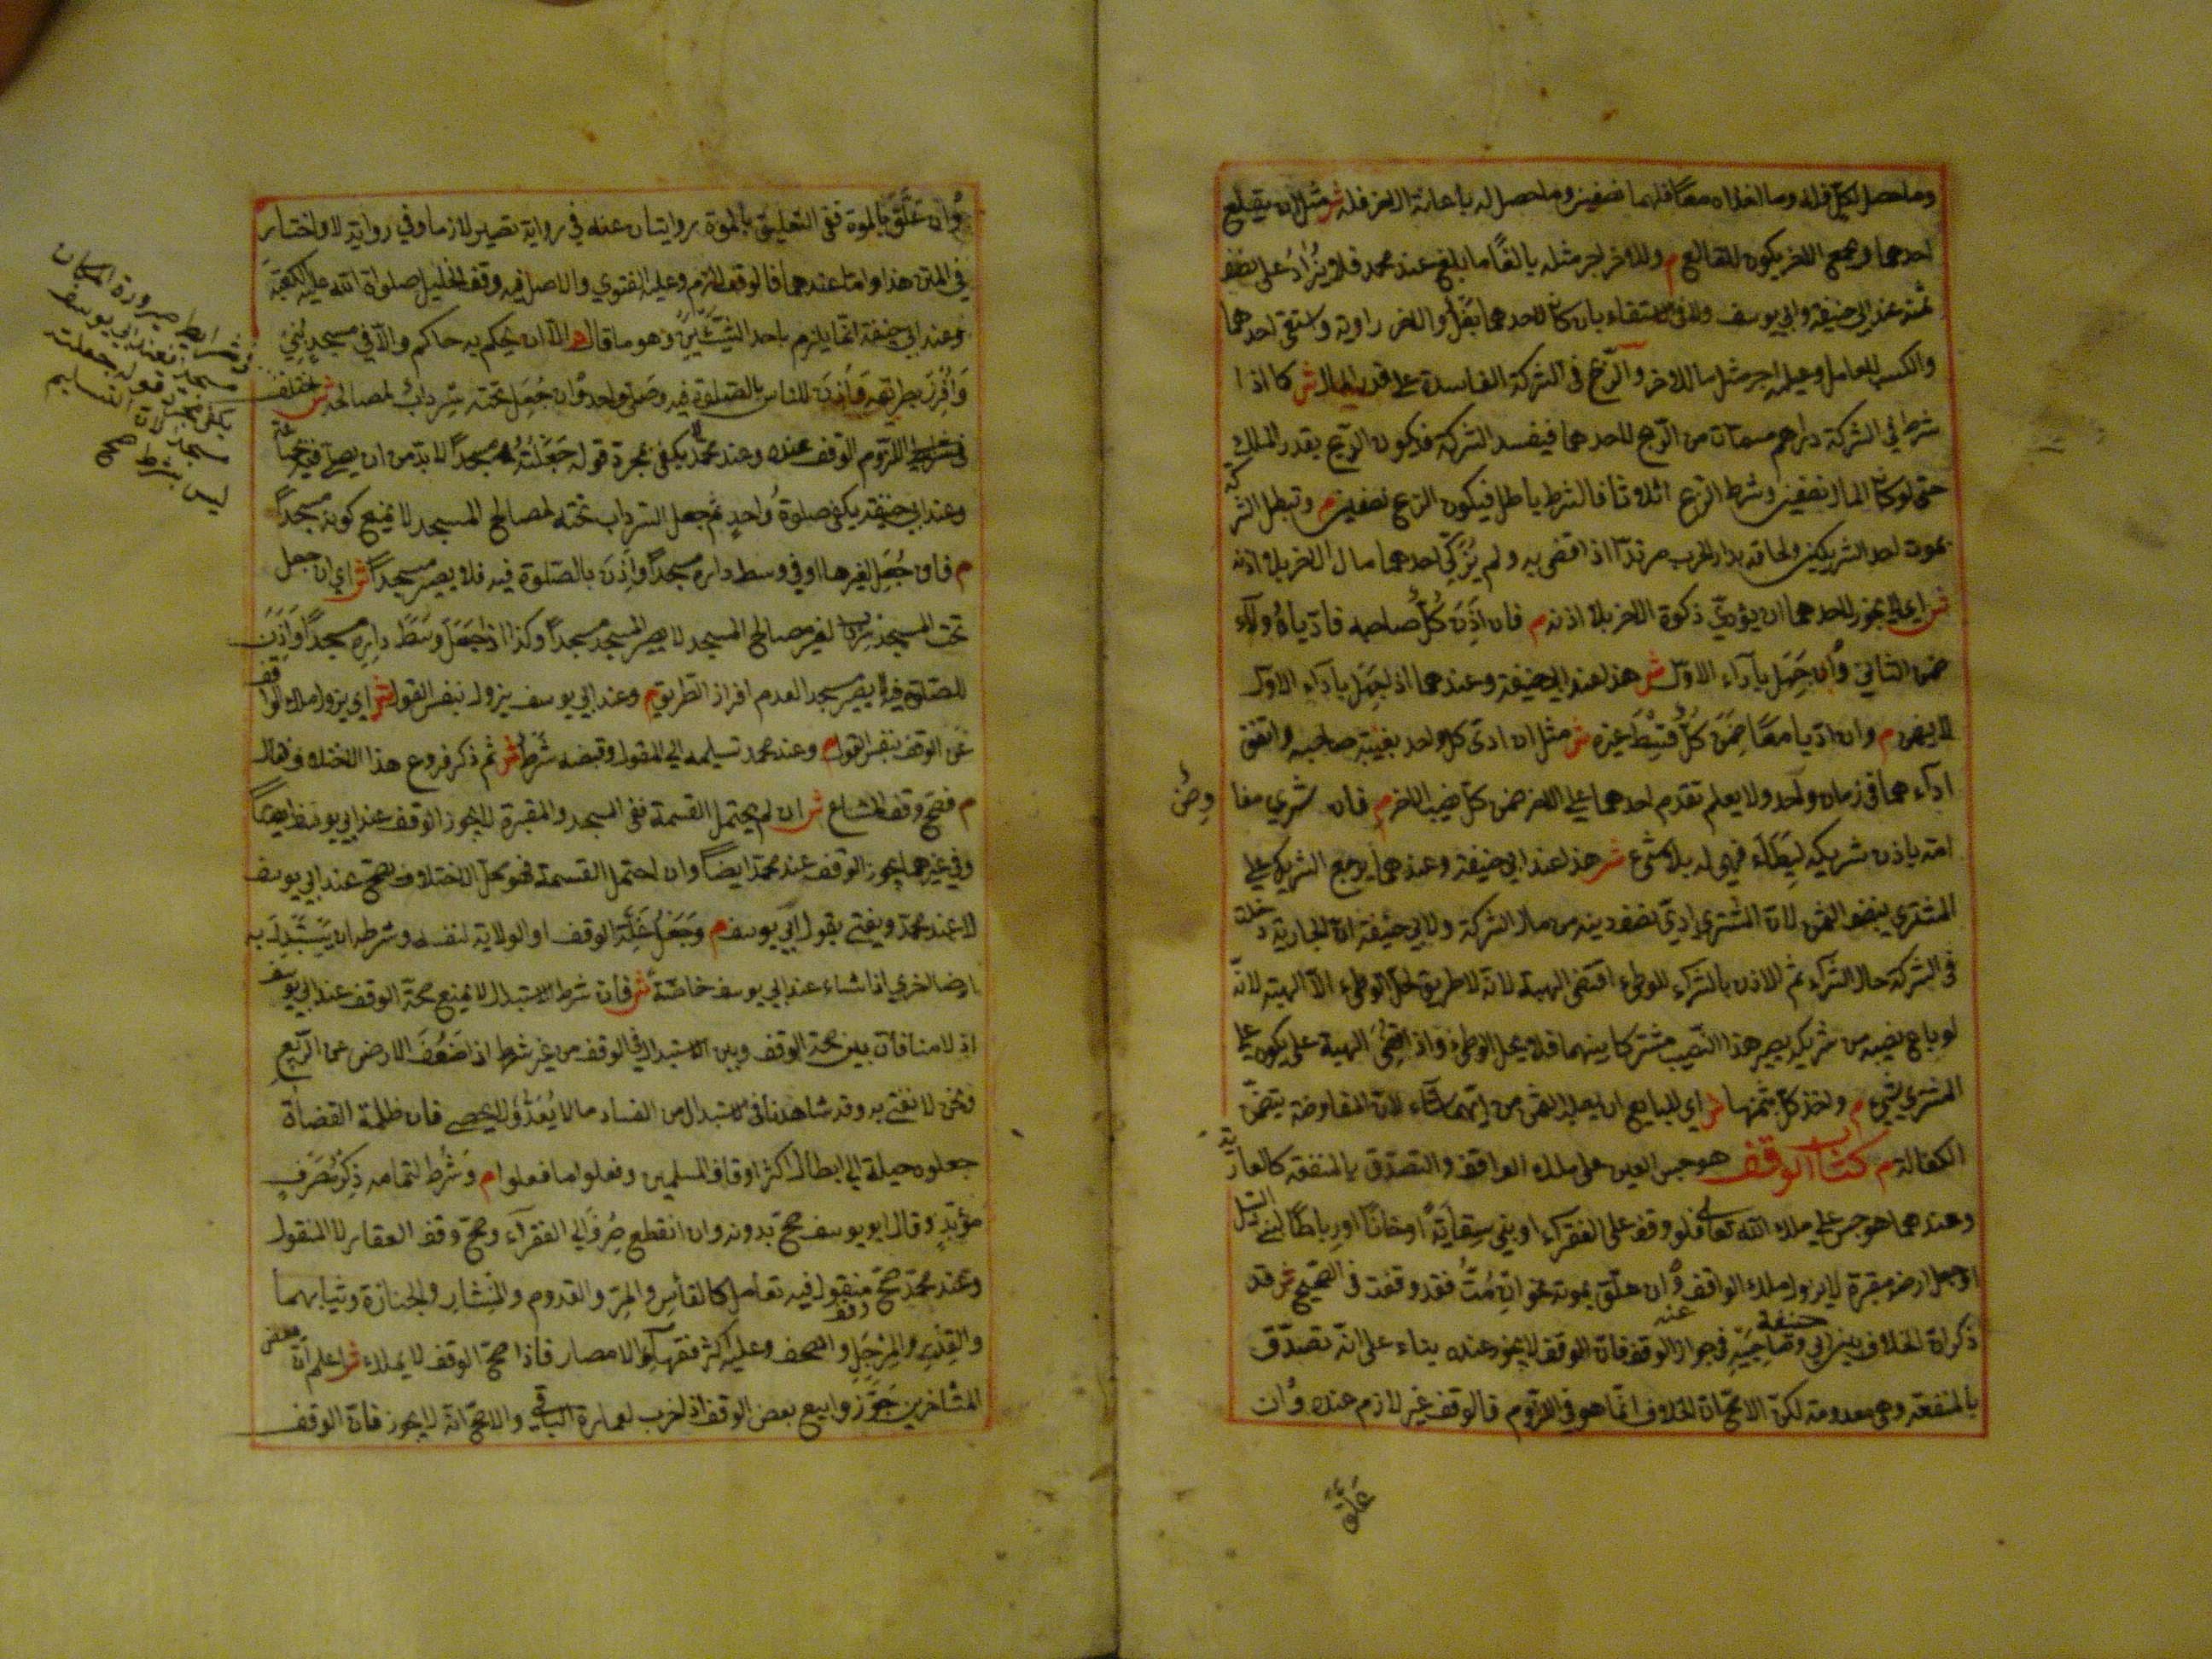 وما حصل لكل فله وما اخذاه معًا فلهما نصفين وما حصل له باعانة الاخر فله ش مثل ان يقلع
احدهما ويجمع الاخر يكون للقالع م وللاخر اجر مثله بالغًا ما بلغ عند محمد فلا يزاد على نصف
ثمنه عند ابي حنيفة وابي يوسف ولا في الاستقاء بان كان لاحدهما بغل وللاخر راوية واستقى احدهما
والكسب للعامل وعليه اجر مثل ما للاخر والربح في الشركة الفاسدة على قدر المال ش كما اذا
شرط في الشركة دراهم مسماة من الربح لاحدهما فيفسد الشركة فيكون الربح بقدر الملك
حتى لو كان المال نصفين وشرط الربح اثلاثا فالشرط باطل فيكون الربح نصفين م وتبطل الشركة
بموت احد الشريكين ولحاقه بدار الحرب مرتدًا اذا قضى به ولم يُزكّ احدهما مال الاخر بلا اذنه
ش اي لا يجوز لاحدهما ان يؤدي زكوة الاخر بلا اذنه م فان اذن كل صاحبه فادياه ولاء
ضمن الثاني وان جهل باداء الاول ش هذا عند ابي حنيفة وعندهما اذا جهل باداء الاول
لا يضمن م وان اديا معًا ضمن كل قسط غيره ش مثل ان ادى كل واحد بغيبة صاحبه واتفق
اداءهما في زمان واحد ولا يعلم تقدم احدهما على الاخر ضمن كل نصيب الاخر م فان شرى مفا
امة باذن شريكه ليطاء فهي له بلا شيء ش هذا عند ابي حنيفة وعندهما يرجع الشريك على
المشتري بنصف الثمن لان المشتري ادى نصف دينه من مال الشركة ولابي حنيفة ان الجارية دخلت
في الشركة حال الشراء ثم الاذن بالشراء للوطئ اقتضى الهبة لانه لا طريق لحل الوطئ الا الهبة لانه
لو باع نصيبه من شريكه يصير هذا النصيب مشتركا بينهما فلا يحل الوطئ واذا اقتضى الهبة على يكون على
المشتري شيء م واخذ كل بثمنها ش اي للبايع ان يطلب الثمن من ايهما شاء لان المفاوضة يتضمن
الكفالة م كتاب الوقف هو حبس العين على ملك الواقف والتصدق بالمنفعة كالعارية
وعندهما هو حبس على ملك الله تعالى فلو وقف على الفقراء او بنى سقاية او خانًا او رباطًا لبني السبيل
او جعل ارضه مقبرة لا يزول ملك الواقف وان علق بموته نحو ان مت فقد وقفت في الصحيح ش قد
ذكر ان الخلاف بين ابي حنيفة وصاحبيه في جواز الوقف فان الوقف لا يجوز عنده بناء على انه تصدق
بالمنفعة وهي معدومة لكن الاصح ان الخلاف انما هو في اللزوم فالوقف غير لازم عنده وان
علق
وان علق بالموت ففي التعليق بالموت روايتان عنه في رواية تصير لازما وفي رواية لا واختار
في المتن هذا واما عندهما فالوقف لازم وعليه الفتوى والاصل فيه وقف الخليل صلوات الله عليه الكعبة
وعند ابي حنيفة انما يلزم باحد الشيئين وهو ما قال م الا ان يحكم به حاكم والا في مسجد بُني
وأُفرز بطريقه واذن للناس بالصلوة فيه وصلى واحد وان جُعل تحته سرداب لمصالحه ش اختلف
في شرط اللزوم الوقف عنده وعند محمد لا يكفي مجرد قوله جعلته مسجدًا لا بد من ان يصلى فيه جماعة
وعند ابي حنيفة يكفي صلوة واحد ثم جعل السرداب تحته لمصالح المسجد لا يمنع كونه مسجدًا
م فان جعل لغيرها او في وسط داره مسجدًا واذن بالصلوة فيه فلا يصير مسجدًا ش اي ان جعل
تحت المسجد سرداب لغير مصالح المسجد لا يصير المسجد مسجدًا وكذا اذا جعل وسط داره مسجدًا واذن
للصلوة فيه لا يصير مسجدا لعدم افراز الطريق م وعند ابي يوسف يزول بنفس القول ش اي يزول ملك الواقف
عن الوقف بنفس القول م وعند محمد تسليمه الى المتولى وقبضه شرط ش ثم ذكر فروع هذا الاختلاف فقال
م فصح وقف المشاع ش ان لم يحتمل القسمة ففي المسجد والمقبرة لا يجوز الوقف عند ابي يوسف ايضًا
وفي غيرهما يجوز الوقف عند محمد ايضًا وان احتمل القسمة فهو محل الاختلاف فيصح عند ابي يوسف
لا عند محمد ويفتى بقول ابي يوسف م وجعل غلة الوقف او الولاية لنفسه وشرطه ان يستبدل به
ارضا اخرى اذا شاء عند ابي يوسف خاصة ش فان شرط الاستبدال لا يمنع صحة الوقف عند ابي يوسف
اذ لا منافاة بين صحة الوقف وبين الاستبدال في الوقف من غير شرط اذا ضعف الارض عن الريع
ونحن لا نفتي به وقد شاهدنا في الاستبدال من الفساد ما لا يُعد ولا يحصى فان ظلمة القضاة
جعلوه حيلة الى ابطال اكثر اوقاف المسلمين وفعلوا ما فعلوا م وشرط لتمامه ذكر مصرف
مؤبد وقال ابو يوسف صح بدونه وان انقطع صُرف الى الفقراء وصح وقف العقار لا المنقول
وعند محمد صح وقف منقول فيه تعامل كالفأس والمر والقدوم والمنشار والجنازة وثيابهما
والقدر والمرجل والمصحف وعليه اكثر فقهاء الامصار فاذا صح الوقف لا يملك ش اعلم ان بعض
المتاخرين جوزوا بيع بعض الوقف اذا خرب لعمارة الباقي والاصح انه لا يجوز فان الوقف
في شرايط صيرورة المكان
مسجدًا فعند ابي يوسف
يكفي مجرد قوله جعلته
مسجدًا لان التسليم
ليس بشرط صح